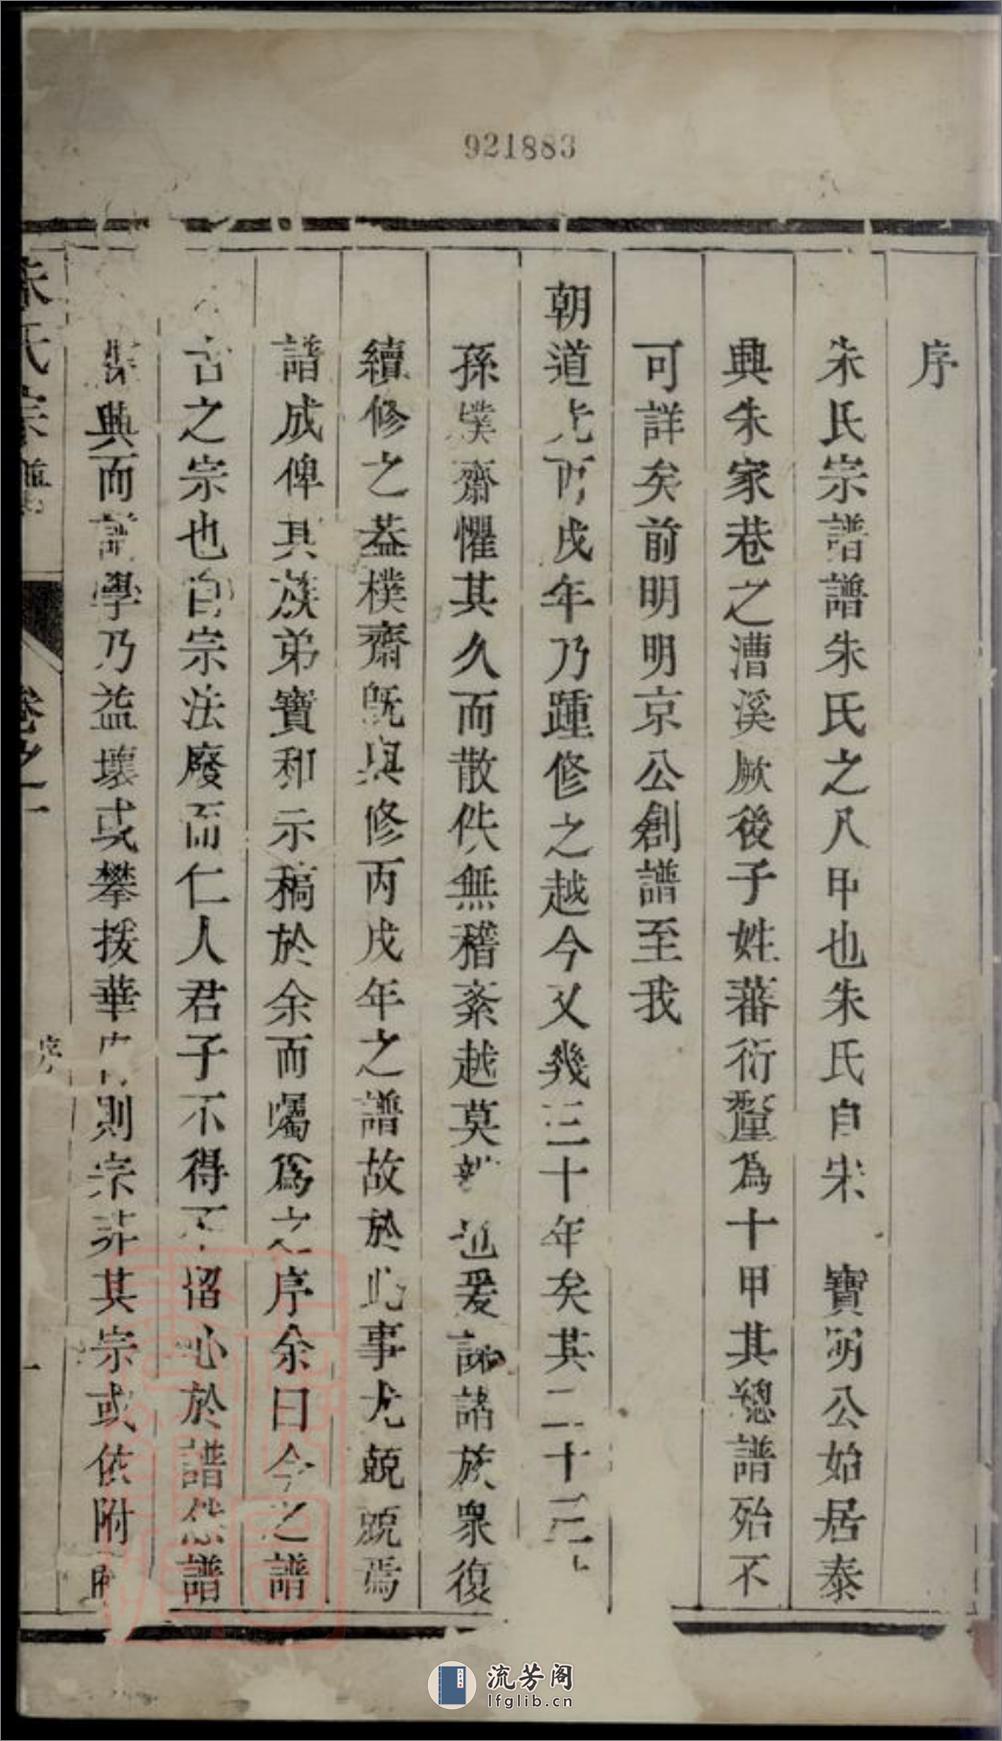 921883
序
朱氏宗譜譜朱氏之八甲也朱氏自宋 寶明公始居泰
興朱家巷之漕溪厥後子姓蕃衍釐為十甲其總譜殆不
可詳矣前明明京公創譜至我
朝道光丙戌年乃踵修之越今又幾三十年矣其二十三
孫樸齋懼其久而散佚無稽紊越莫辨也爰諏諸族衆復
續修之蓋樸齋既與修丙戌年之譜故於此事尤兢兢焉
譜成俾其族弟寶和示稿於余而囑爲之序余曰今之譜
古之宗也自宗法廢而仁人君子不得不留心於譜然譜
興而譜學乃益壞或攀援華冑則宗非其宗或依附
朱氏宗譜
卷之一
序
一
流芳阁
lfglib.cn